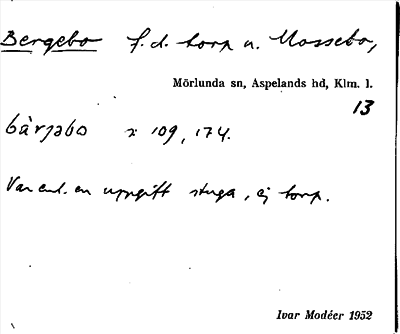 Bergebo f.d. torp u. Mossebo,
Mörlunda sn, Aspelands hd, Klm. l.
13
109, 174.
Var enl. en uppgift stuga, ej torp.
Ivar Modéer 1952